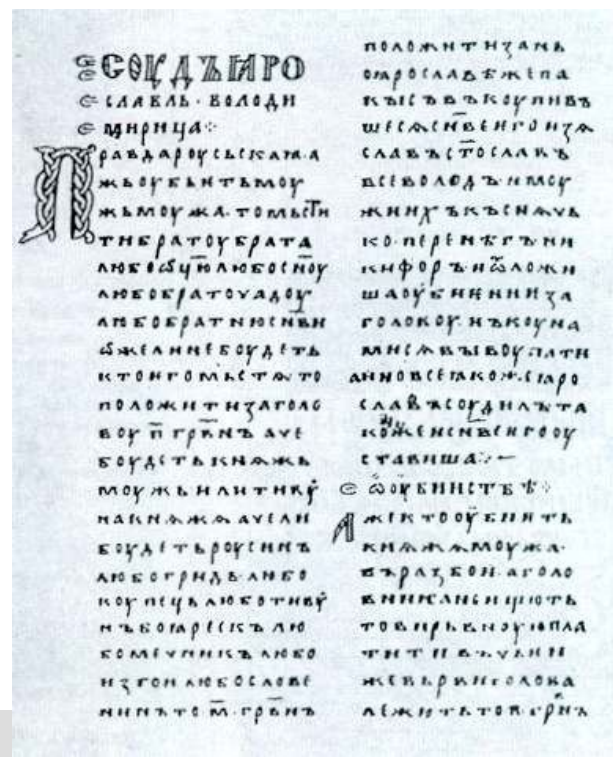 СОУДЪ ꙖРО
СЛАВЛЬ · ВОЛОДИ
МИРИЦА⁘
ПРАВДА РОУСЬСКАꙖ · А
ЖЬ ОУБЬИТЬ МОУ
ЖЬ МОУЖА · ТО МЬСТИ
ТИ БРАТОУ БРАТА
ЛЮБО ѾЦЮ ЛЮБО СНОУ
ЛЮБО БРАТОУЧАДОУ
ЛЮБО БРАТНЮ СНВИ
ѾЖЕ ЛИ НЕ БОУДЕТЬ
КТО ИГО МЬСТѦ ТО
ПОЛОЖИТИ ЗА ГОЛО
ВОУ П ГРВНЪ АЧЕ
БОУДЕТЬ КНѦЖЬ
МОУЖЬ ИЛИ ТИВУ
НА КНѦЖѦ АЧЕ ЛИ
БОУДЕТЬ РОУСИНЪ
ЛЮБО ГРИДЬ ЛЮБО
КОУПЕЦЬ ЛЮБО ТИВУ
НЪ БОꙖРЕСКЪ ЛЮ
БО МЕЧНИКЪ ЛЮБО
ИЗГОИ ЛЮБО СЛОВЕ
НИНЪ ТО М ГРВНЪ
ПОЛОЖИТИ ЗА НЬ
ПО ꙖРОСЛАВѢ ЖЕ ПА
КЫ СЪВЪКОУПИВЪ
ШЕСѦ СНВЕ ИГО ИЗѦ
СЛАВЪ СТОСЛАВЪ
ВСЕВОЛОДЪ · И МОУ
ЖИ ИХЪ КЪСНѦЧЬ
КО · ПЕРЕНѢГЪ НИ
КИФОРЪ И ѾЛОЖИ
ША ОУБИИНИИ ЗА
ГОЛОВОУ · НЪ КОУНА
МИ СѦ ВЫКОУПАТИ
А ИНО ВСЕ ꙖКОЖЕ ꙖРО
СЛАВЪ СОУДИЛЪ ТА
КОЖЕ И СНВЕ ИГО ОУ
СТАВИША⁘
Ѿ ОУБИИСТВѢ⁘
АЖЕ КТО ОУБИИТЬ
КНѦЖѦ МОУЖА ·
ВЪ РАЗБОИ · А ГОЛО
ВНИКА НЕ ИЩЮТЬ
ТО ВИРЬВНОУЮ ПЛА
ТИТИ ВЪ ЧЬИИ
ЖЕ ВЬРВИ ГОЛОВА
ЛЕЖИТЬ ТО П ГРВНЪ